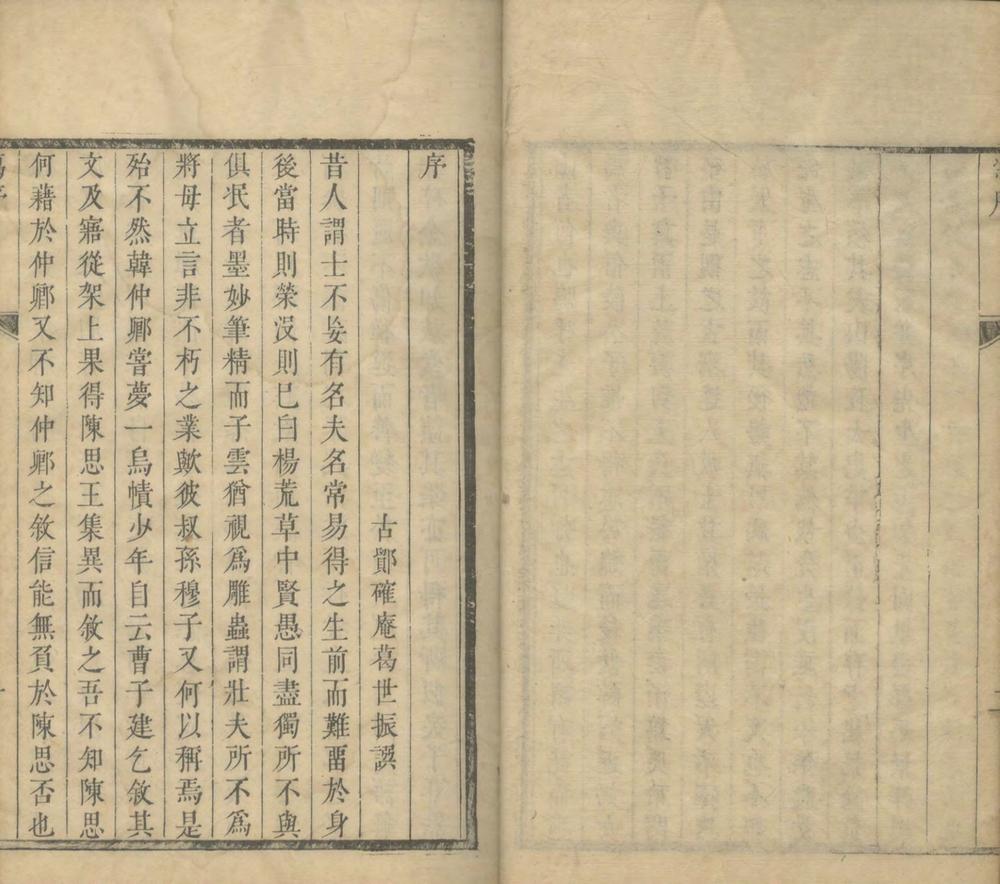 序
古鄞確庵葛世振譔
昔人謂士不妄有名夫名常易得之生前而難畱於身
後當時則榮沒則已白楊荒草中賢愚同盡獨所不與
俱泯者墨妙筆精而子雲猶視爲雕蟲謂壯夫所不爲
將毋立言非不朽之業歟彼叔孫穆子又何以稱焉是
殆不然韓仲卿嘗夢一烏幘少年自云曹子建乞敘其
文及寤從架上果得陳思王集異而敘之吾不知陳思
何藉於仲卿又不知仲卿之敘信能無負於陳思否也